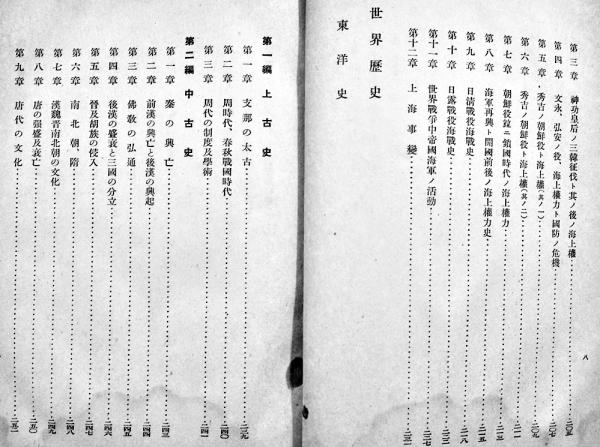 第三章 神功皇后ノ三韓征伐ト其ノ後ノ海上權
第四章 文永、弘安ノ役、海上權力ト國防ノ危機
第五章 秀吉ノ朝鮮役ト海上權(其ノ一)
第六章 秀吉ノ朝鮮役ト海上權(其ノ二)
第七章 朝鮮役竝ニ鎖國時代ノ海上權力
第八章 海軍再興ト開國前後ノ海上權力史
第九章 日清戰役海戰史
第十章 日露戰役海戰史
第十一章 世界戰爭中帝國海軍ノ活動
第十二章 上海事變
世界歷史
東洋史
八
第一編 上古史
第一章 支那の太古
第二章 周時代、春秋戰國時代
第三章 周代の制度及學術
第二編 中古史
第一章 秦の興亡
第二章 前漢の興亡と後漢の興起
第三章 佛敎の弘通
第四章 後漢の盛衰と三國の分立
第五章 晉及胡族の侵入
第六章 南北朝、隋
第七章 漢魏晉南北朝の文化
第八章 唐の强盛及衰亡
第九章 唐代の文化